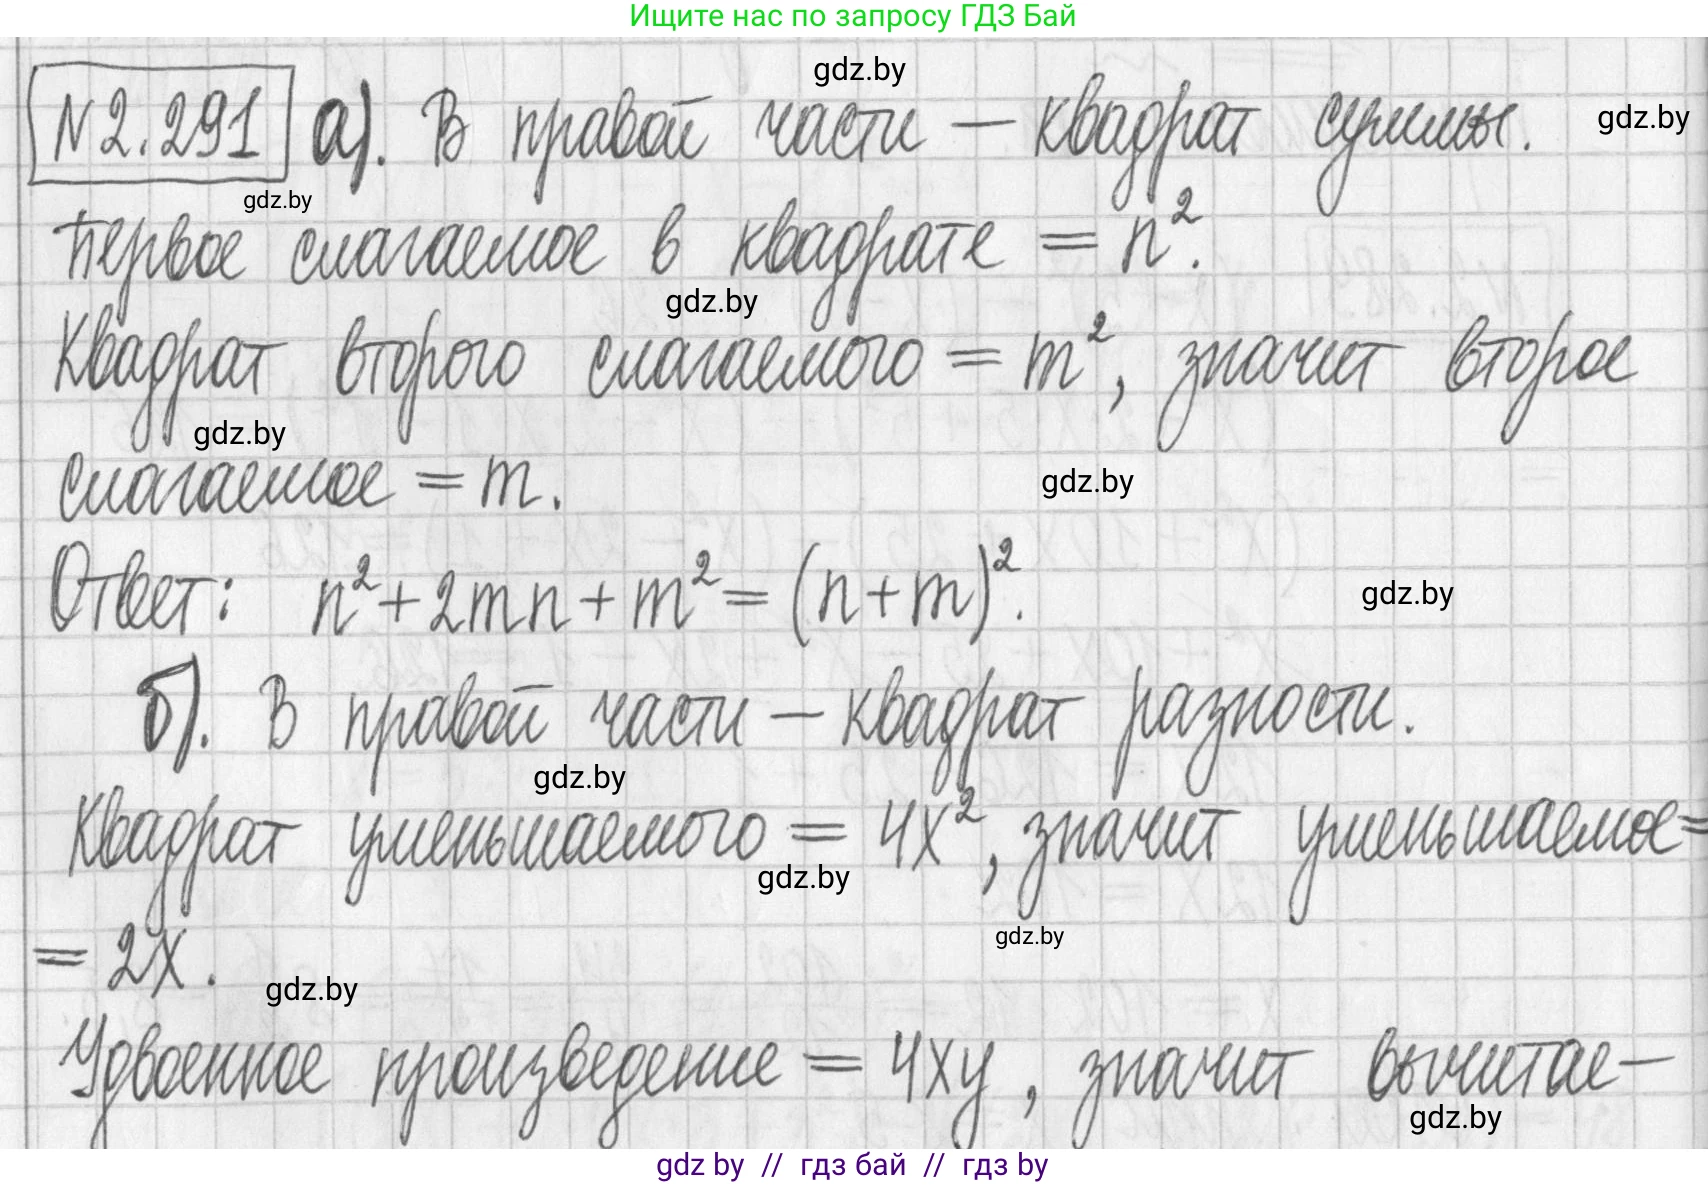 Ищите нас по запросу ГДЗ Бай
gdz.by
№2.291 а). В правой части – квадрат суммы.
gdz.by
gdz.by
Первое слагаемое в квадрате = n².
gdz.by
Квадрат второго слагаемого = m², значит второе
gdz.by
слагаемое = m.
gdz.by
Ответ: n²+2mn+m²=(n+m)².
gdz.by
б). В правой части – квадрат разности.
gdz.by
Квадрат уменьшаемого = 4x², значит уменьшаемое=
gdz.by
gdz.by
= 2x.
gdz.by
Удвоенное произведение = 4xy, значит вычитае–
gdz.by
gdz by // гдз бай // гдз by